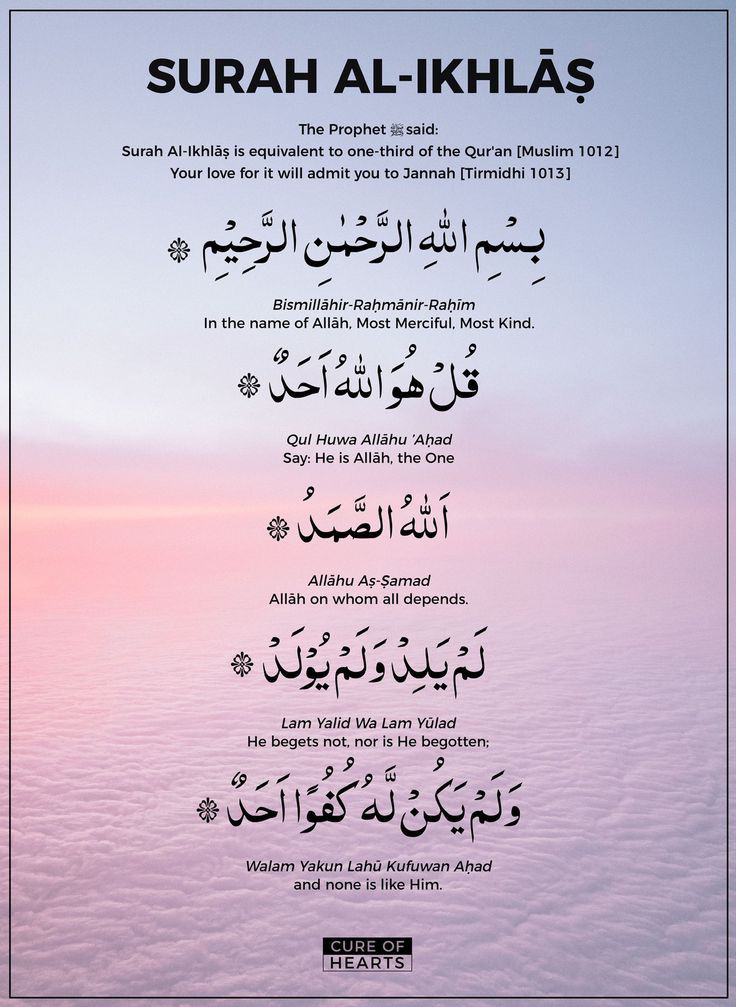 SURAH AL-IKHLĀṢ
The Prophet ﷺ said:
Surah Al-Ikhlāṣ is equivalent to one-third of the Qur'an [Muslim 1012]
Your love for it will admit you to Jannah [Tirmidhi 1013]
بِسْمِ اللهِ الرَّحْمٰنِ الرَّحِيْمِ
Bismillāhir-Raḥmānir-Raḥīm
In the name of Allāh, Most Merciful, Most Kind.
قُلْ هُوَ اللهُ اَحَدٌ
Qul Huwa Allāhu 'Aḥad
Say: He is Allāh, the One
اَللهُ الصَّمَدُ
Allāhu Aṣ-Ṣamad
Allāh on whom all depends.
لَمْ يَلِدْ وَلَمْ يُوْلَدْ
Lam Yalid Wa Lam Yūlad
He begets not, nor is He begotten;
وَلَمْ يَكُنْ لَّهُ كُفُوًا اَحَدٌ
Walam Yakun Lahū Kufuwan Aḥad
and none is like Him.
CURE OF
HEARTS